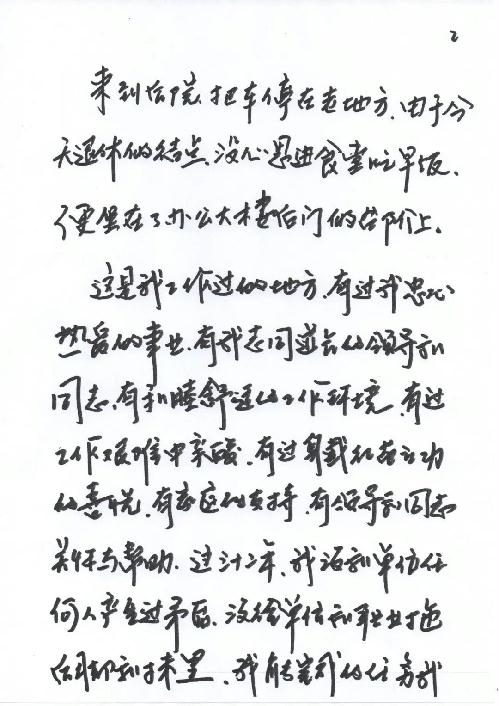 2
来到后院,把车停在老地方,由于今
天退休的结点,没心思进食堂吃早饭,
便坐在了办公大楼后门的台阶上。
这是我工作过的地方,有过我忠心
热爱的事业,有我志同道合的领导和
同志,有和睦舒适的工作环境,有过
工作艰难中辛酸,有过身载初立功
的喜悦,有家庭的支持,有领导和同志
关怀与帮助。这卅二年,我没和单位任
何人产生过矛盾,没给单位和事业拖
后 到 来里,我 我的任务我